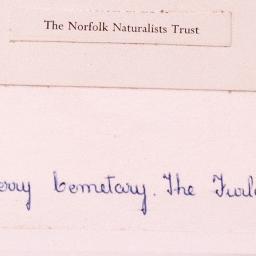 The Norfolk Naturalists Trust
erry Cemetary. The Furl